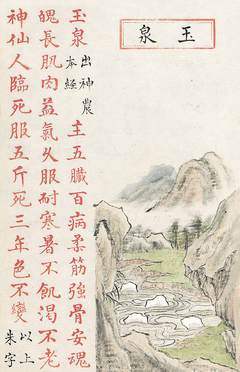 玉泉
玉泉 出神農本經 主五臟百病柔筋強骨安魂
魄長肌肉益氣久服耐寒暑不飢渴不老
神仙人臨死服五斤死三年色不變 以上朱字